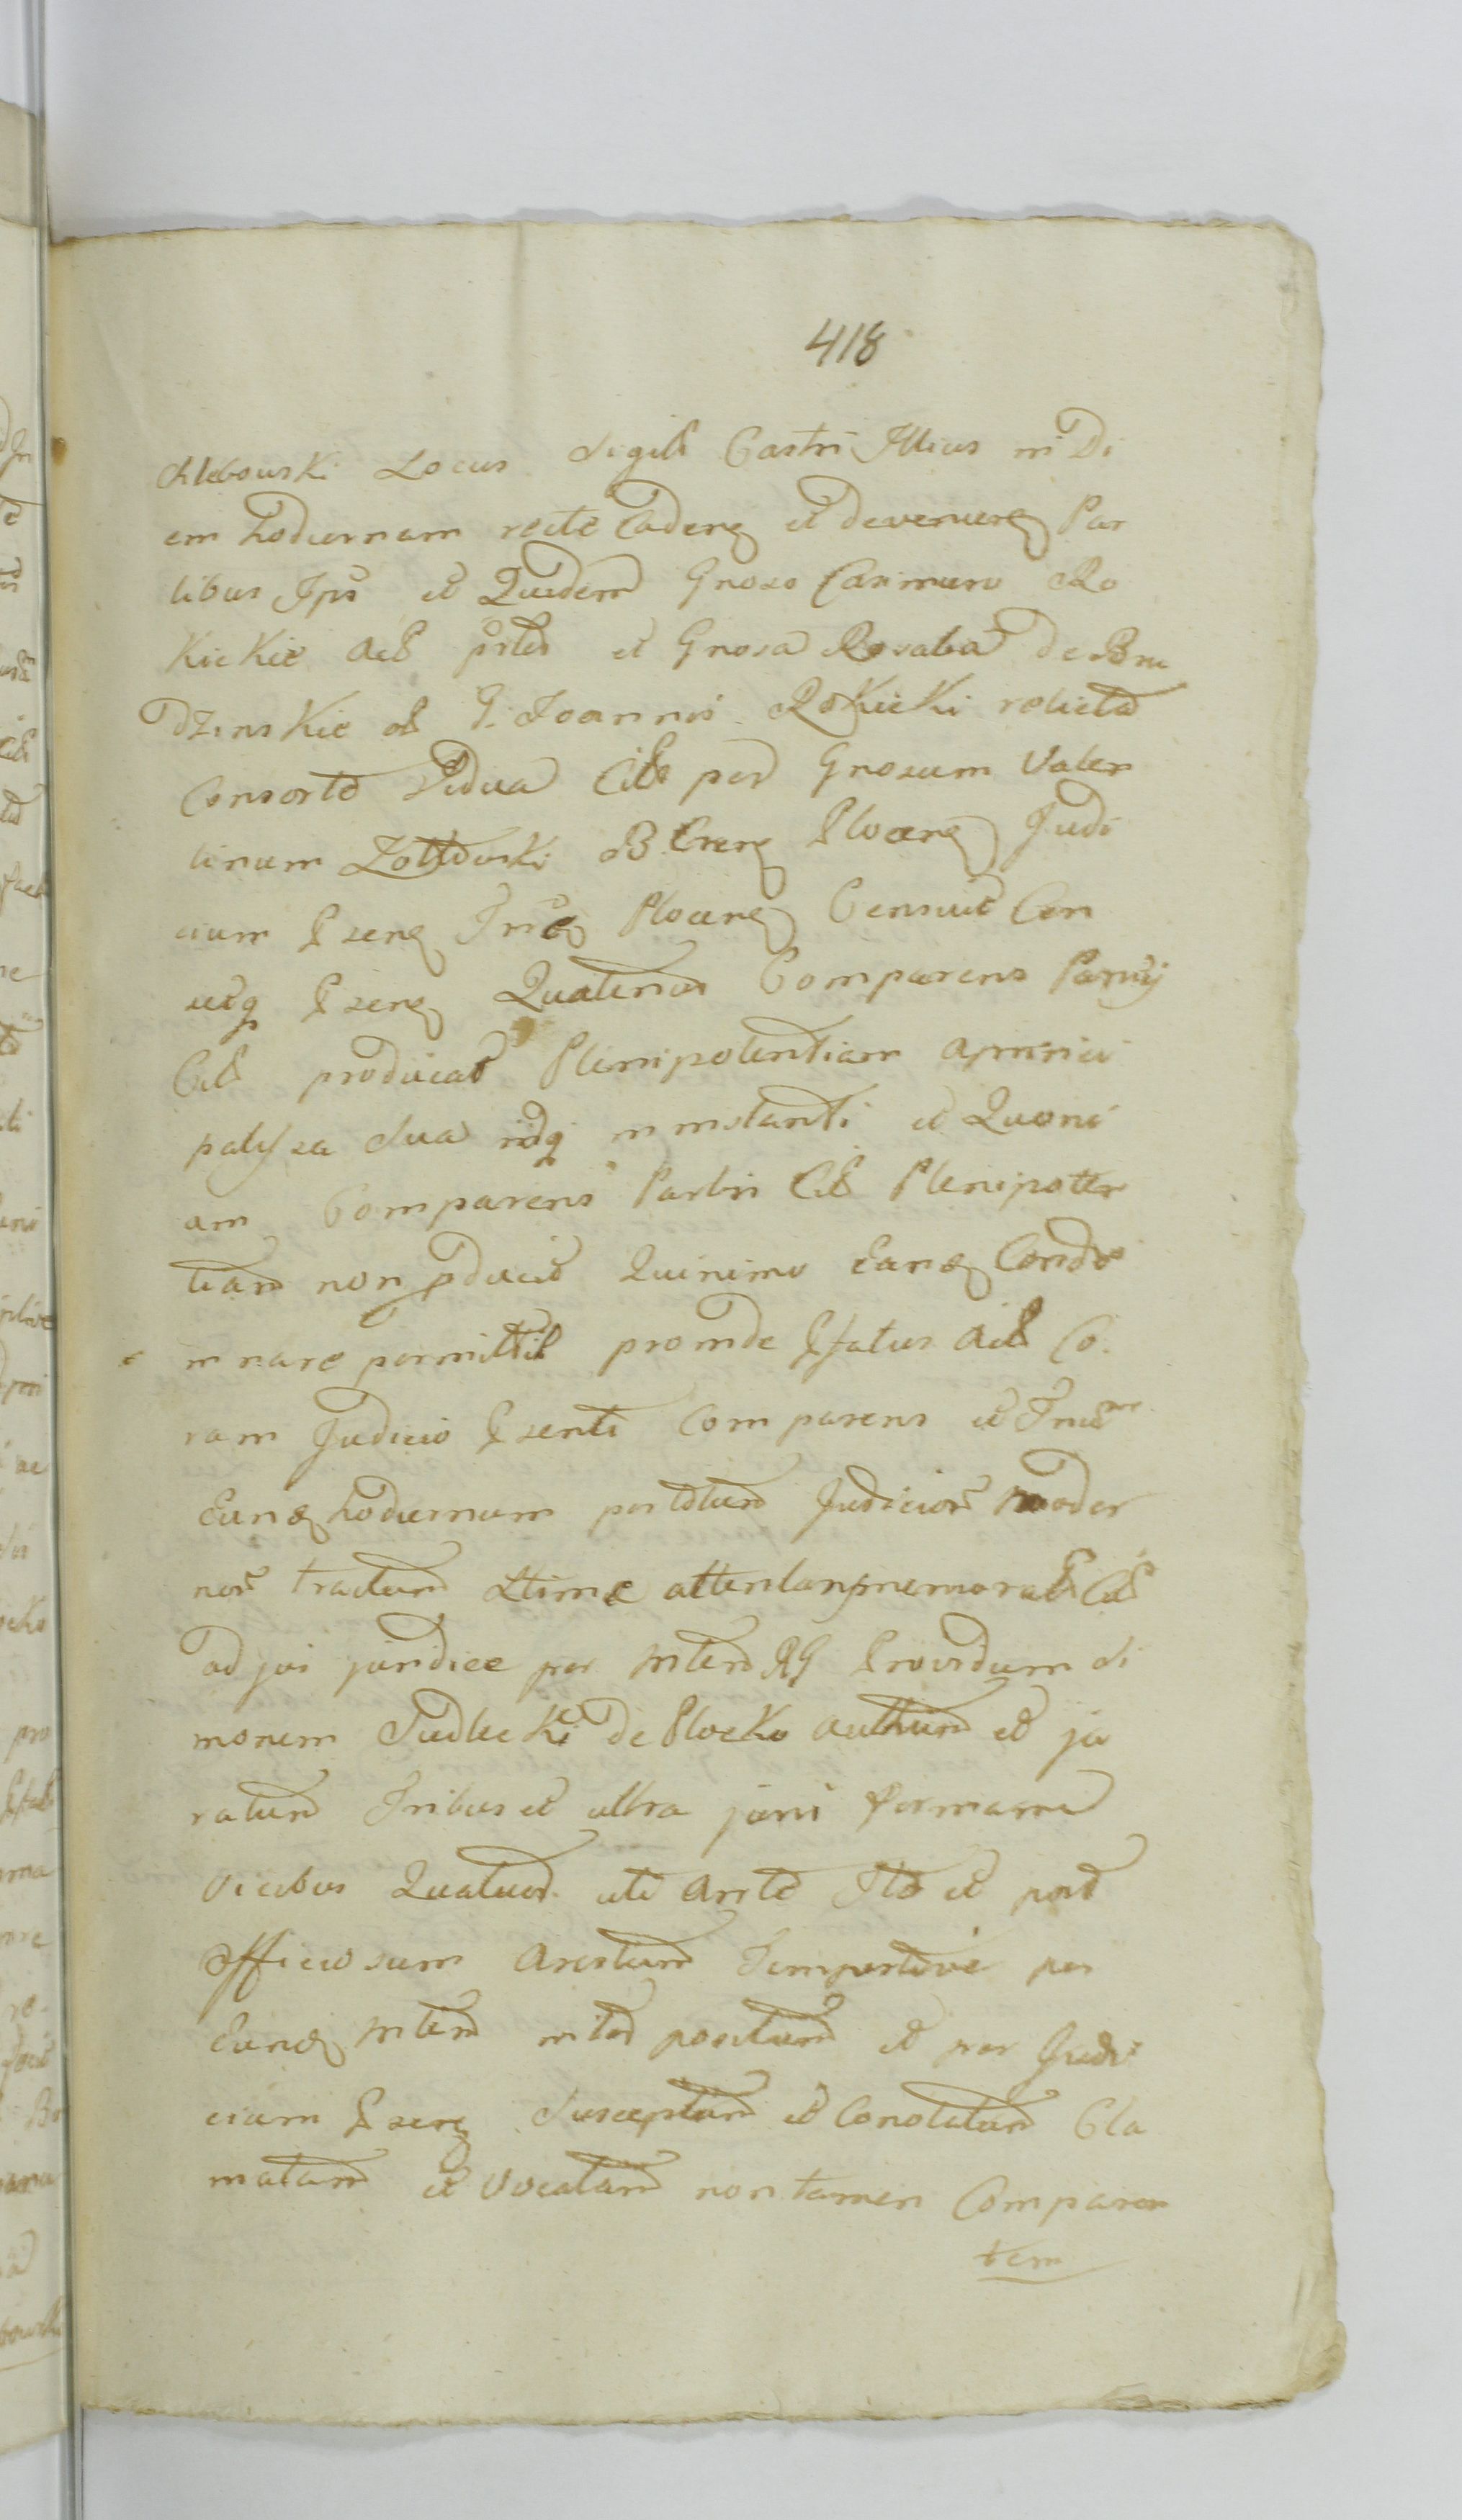 418
chlebowski Locus Sigili Castri Illius in Di
em hodiernam recte Cadeng et devenieng Par
tibus Ipis et Quidem Gnoso Casimiro Ro
kickie Act et Gnosa Rosalia de Bru
dzinskie G. Joannis Rokicki relicta
Consorte Vidua Citt per Gnosum Valen
tinum B Creng Ploceng Judi
cium Pseng Ploceng Censuit Cen
setq Pseng Quatenus Comparens Partis
Citt producat Plenipotentiam a princi
pali sua idq in instanti et Quoni
am Comparens Partis Citt Plenipoten
tiam non pducit Quinimo Eandg Conde
mnare permittit proinde Pfatus Act Co
ram Judicio Psenti Comparens et
Eundg hodiernum Judicior moder
nor tractum attentans memorat Citt
ad jus juridice per Mtem RG Providum Si
monem Sudlecki de Plocko authum et ju
ratum Tribus et ultra juris formam
vicibus Quatuor uti Aresto Ito et post
officiosum Arestum Tempestive per
Eundg Mtem positum et per Judi
cium Pseng Susceptum et Conotatum Cla
matam et Vocatam non tamen Comparen
tem